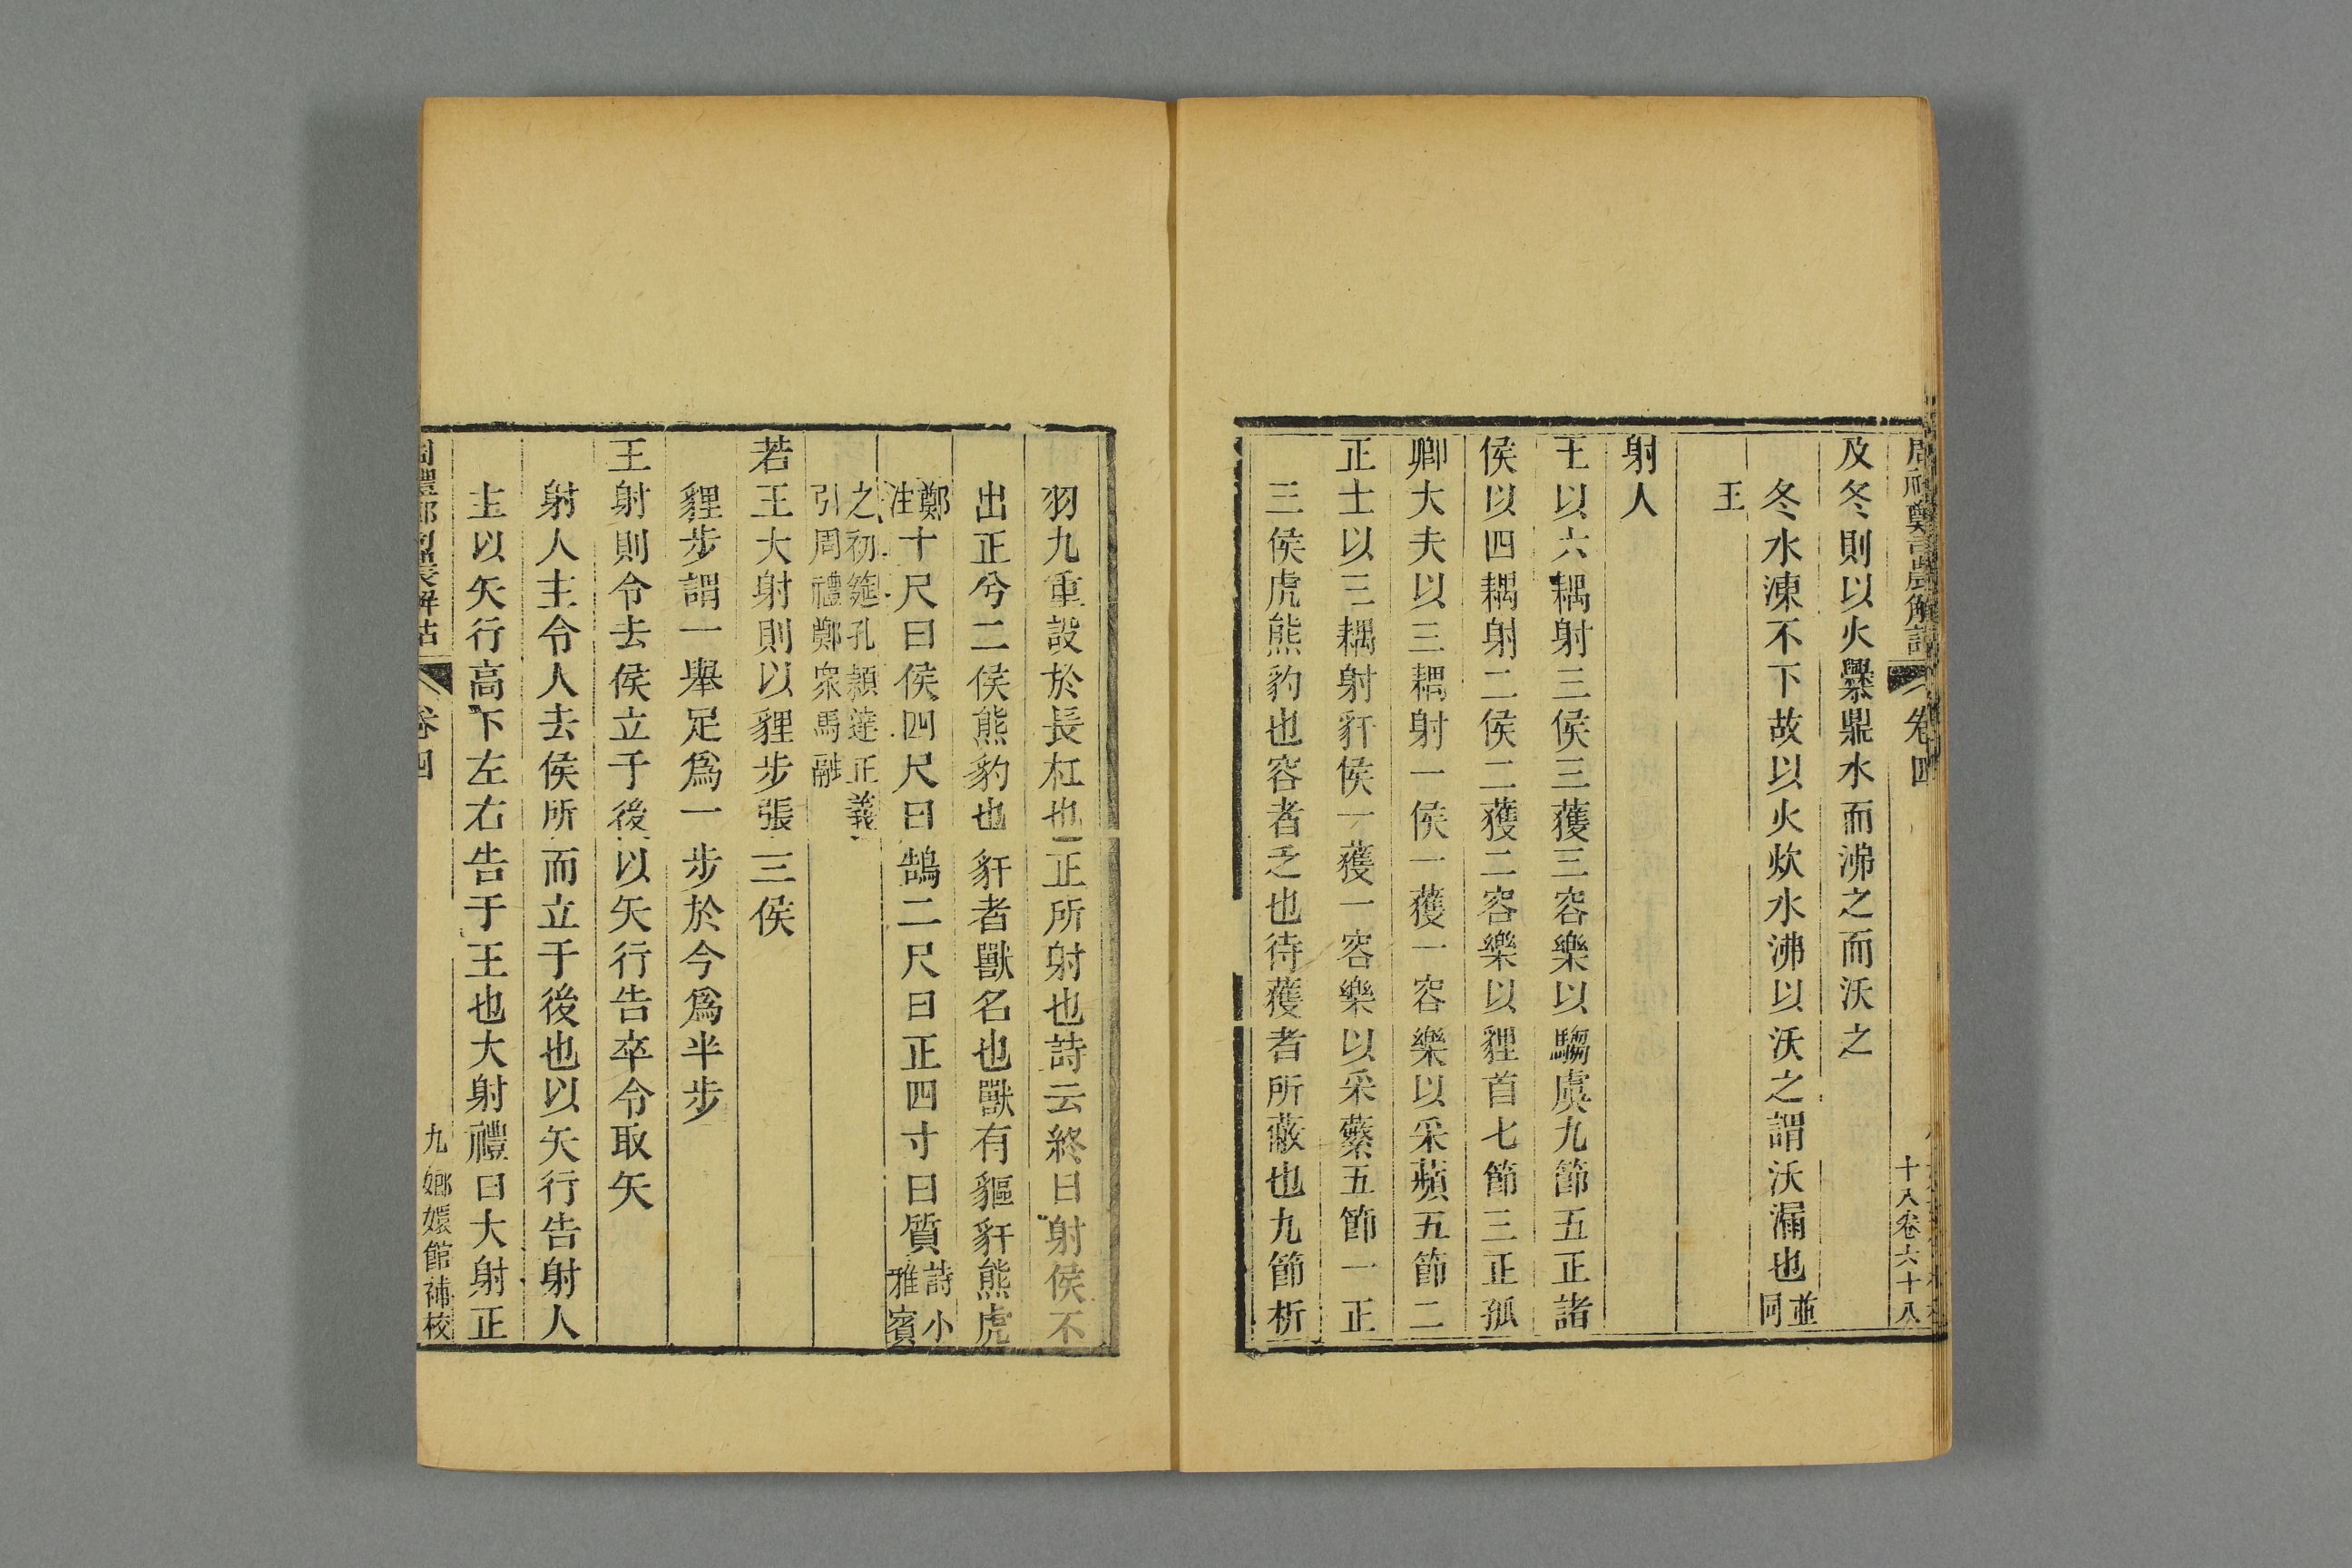 卷四
十八卷六十八
及冬則以火爨鼎水而沸之而沃之
冬水凍不下故以火炊水沸以沃之謂沃漏也並同
王
射人
王以六耦射三侯三獲三容樂以騶虞九節五正諸
侯以四耦射二侯二獲二容樂以貍首七節三正孤
卿大夫以三耦射一侯一獲一容樂以采蘋五節二
正士以三耦射豻侯一獲一容樂以采蘩五節一正
三侯虎熊豹也容者乏也待獲者所蔽也九節析
羽九重設於長杠也正所射也詩云終日射侯不
出正兮二侯熊豹也豻者獸名也獸有貙豻熊虎
鄭注十尺曰侯四尺曰鵠二尺曰正四寸曰質詩小雅賓
之初筵孔穎達正義引周禮鄭衆馬融
若王大射則以貍步張三侯
貍步謂一舉足爲一步於今爲半步
王射則令去侯立于後以矢行告卒令取矢
射人主令人去侯所而立于後也以矢行告射人
主以矢行高下左右告于王也大射禮曰大射正
卷四
九 嫏嬛館補校